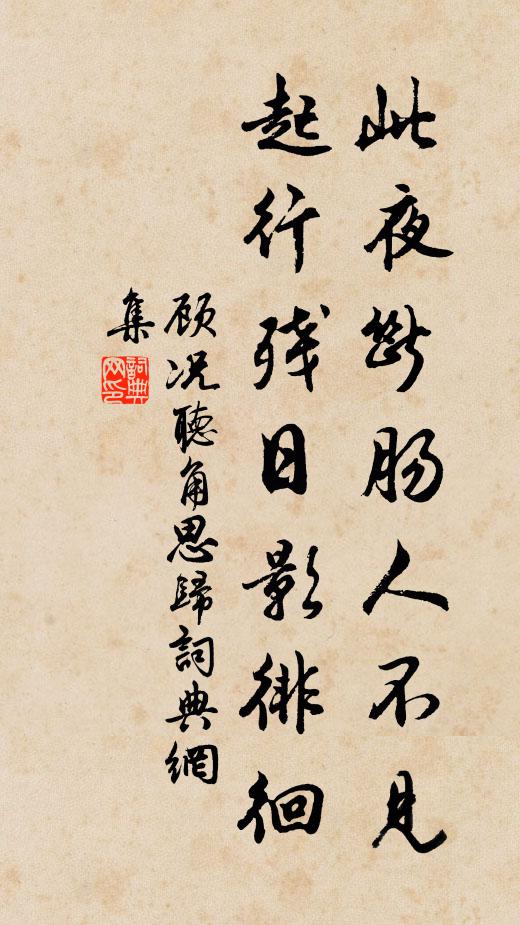 此夜断肠人不见
起行残日影徘徊
顾况聽角思歸詞典網
集
詞典网印